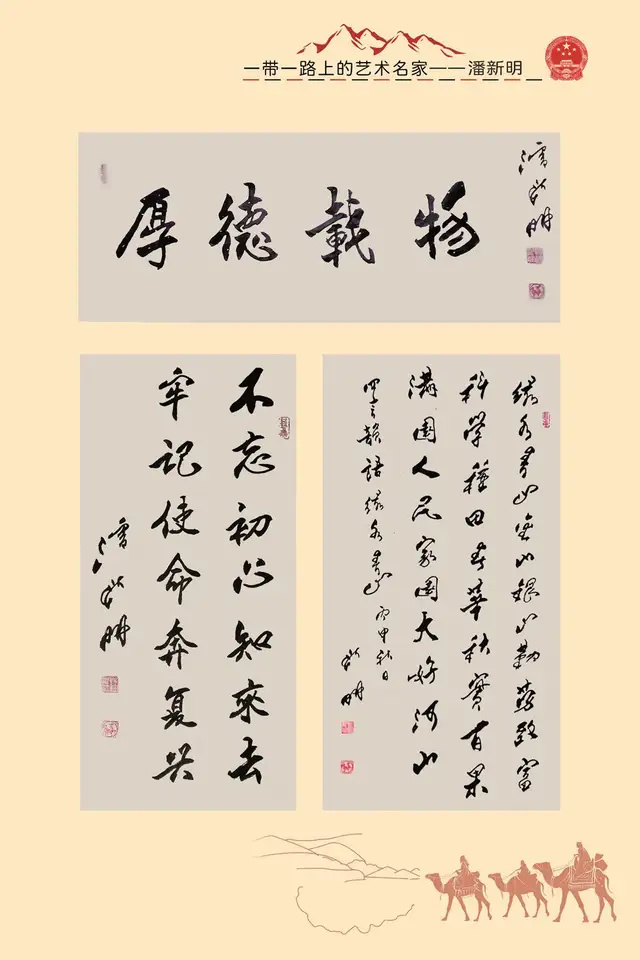 一带一路上的艺术名家——潘新明
厚德載物
潘新明
不忘初心知來去
牢记使命奔复兴
潘新明
绿水青山金山銀山勤劳致富
科学種田春華秋實百果
满園人民家園大好河山
四言韻語绿水青山丙申秋日
新明